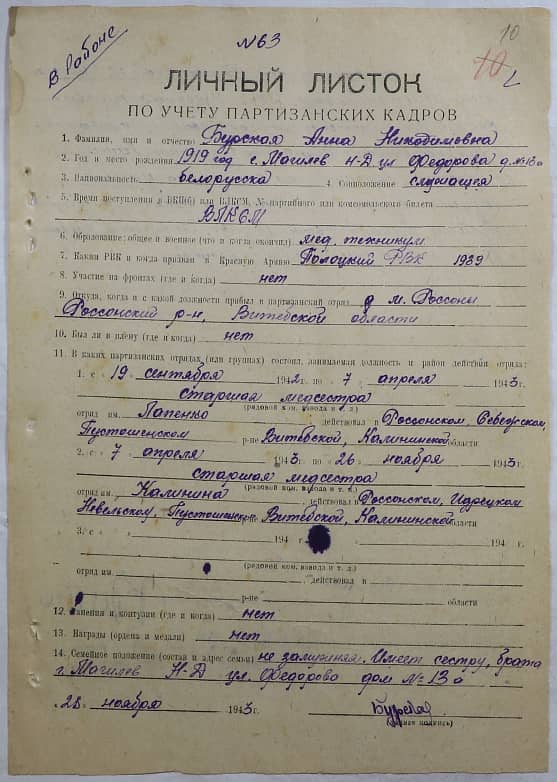 10
№63
В Районе
10
ЛИЧНЫЙ ЛИСТОК
ПО УЧЕТУ ПАРТИЗАНСКИХ КАДРОВ
1. Фамилия, имя и отчество Бурская Анна Никодимовна
2. Год и место рождения 1919 год г. Магилев Н-Д ул Федорова д.№13а
3. Национальность белорусска 4. Соцположение служащея
5. Время поступления в ВКП(б) или ВЛКСМ, № партийного или комсомольского билета
ВЛКСМ
6. Образование: общее и военное (что и когда окончил) мед. техникум
7. Каким РВК и когда призван в Красную Армию Полоцкий РВК 1939
8. Участие на фронтах (где и когда) нет
9. Откуда, когда и с какой должности прибыл в партизанский отряд д м. Россоны
Россонский р-н, Витебской области
10. Был ли в плену (где и когда) нет
11. В каких партизанских отрядах (или группах) состоял, занимаемая должность и район действия отряда:
1. с 19 сентября 1942 г. по 7 апреля 1943 г.
старшая медсестра
(рядовой ком. взвода и т. д.)
отряд им. Лапенко действовал в Россонском, Себежском,
Пустошенском р-не Витебской, Калининской области
2. с 7 апреля 1943 г. по 26 ноября 1943 г.
старшая медсестра
(рядовой ком. взвода и т. д.)
отряд им. Калинина действовал в Россонском, Идрецком
Невельском, Пустошенском р-не Витебской, Калининской области
3. с 194 г. 194 г.
(рядовой ком. взвода и т. д.)
отряд им. действовал в
р-не области
12. Ранения и контузии (где и когда) нет
13. Награды (ордена и медали) нет
14. Семейное положение (состав и адрес семьи) не замужняя. Имеет сестру, брата
г. Магилев Н-Д ул. Федорово дом №13а
„28 ноября 1943 г. Бурская
(личная подпись)